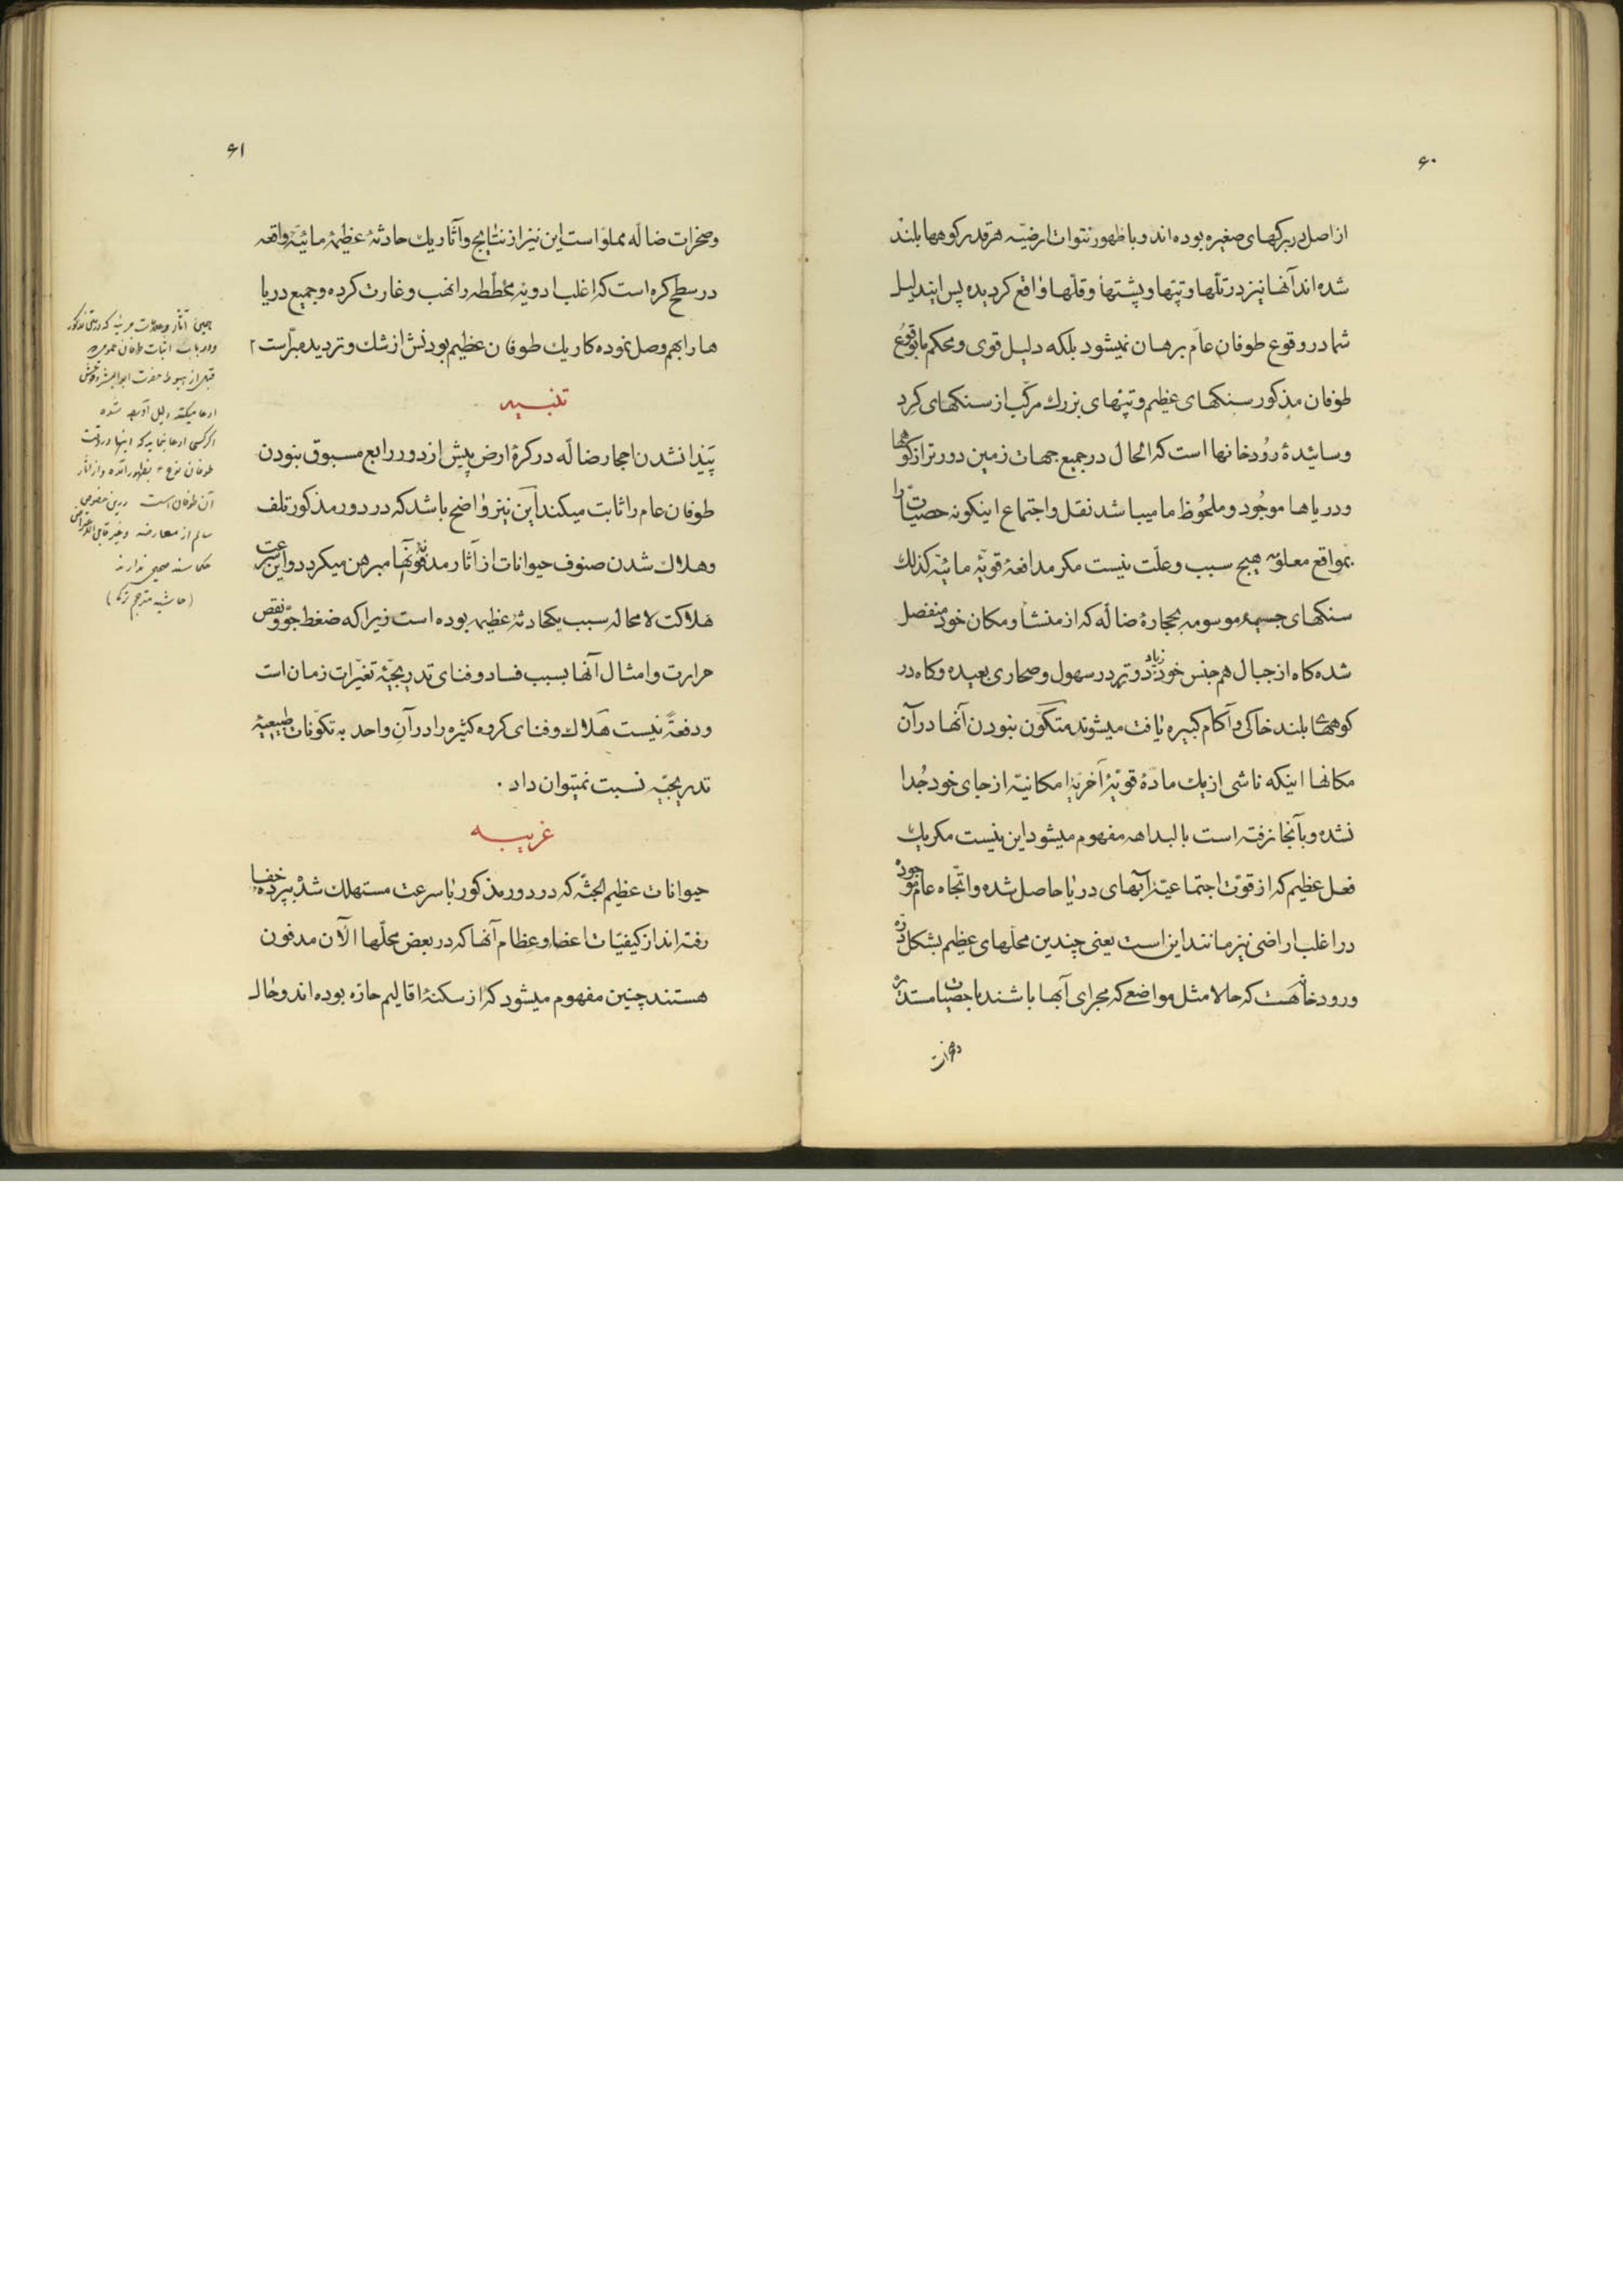 ۶۰
از اصل در برکهای صغیره بوده‌اند و با ظهور نتوات ارضیّه هر قدر کوهها بلند
شده‌اند آنها نیز در تلّها و تپّها و پشتها و قلّها واقع کردیده پس ایندلیل
شما در وقوع طوفان عامّ برهان نمیشود بلکه دلیل قوی و محکم ما بوقوع
طوفان مذکور سنکهای عظیم و تپّهای بزرك مرکّب از سنکهای کرد
و سائیدهٔ رُودخانها است که الحال در جمیع جهات زمین دورتر از کوهها
و دریاها موجُود و ملحُوظ ما میباشد نقل و اجتماع اینکونه حصیّات را
بمواقع معلومه هیچ سبب و علّت نیست مکر مدافعهٔ قویّهٔ مائیّه کذلك
سنکهای جسیمهٔ موسومه بحجارهٔ ضالّه که از منشأ و مکان خود منفصل
شده کاه از جبال هم جنس خود زیاد دورتر در سهول و صحاری بعیده و کاه در
کوههای بلند خاکی و آکام کبیره یافت میشوند متکوّن نبودن آنها در آن
مکانها اینکه ناشی از یك مادّهٔ قویّهٔ اخریه امکانیّه از جای خود جُدا
نشده و بآنجا نرفته است بالبداهه مفهوم میشود این نیست مکر یك
فعل عظیم که از قوّت اجتماعیّهٔ آبهای دریا حاصل شده و اتّجاه عام موجود
در اغلب اراضی نیز مانند این است یعنی چندین محلّهای عظیم بشکل درّه
و رودخانه هست که حالا مثل مواضعی که مجرای آبها باشند با حصیات مستدیره
وصخرات
۶۱
و صخرات ضالّه مملوّ است این نیز از نتایج و آثار یك حادثهٔ عظیمهٔ مائیّهٔ واقعه
در سطح کره است که اغلب ادویهٔ مخطّطه را نهب و غارت کرده و جمیع دریا
ها را بهم وصل نموده کار یك طوفان عظیم بودنش از شك و تردید مبرّاست ۲
تنبیه
پیدا نشدن احجار ضالّه در کرهٔ ارض پیش از دور رابع مسبوق نبودن
طوفان عام را ثابت میکند این نیز واضح باشد که در دور مذکور تلف
و هلاك شدن صنوف حیوانات از آثار مدفونهٔ آنها مبرهن میکردد و این سرعت
هلاکت لامحاله سبب یکحادثهٔ عظیمه بوده است زیرا که ضغط جوّ و نقص
حرارت و امثال آنها بسبب فساد و فنای تدریجیّهٔ تغیّرات زمان است
و دفعةً نیست هلاك و فنای کروه کثیره را در آنِ واحد به تکوّنات طبیعیهٔ
تدریجیّه نسبت نمیتوان داد .
غریبه
حیوانات عظیم الجثّه که در دور مذکور با سرعت مستهلك شده بپردهٔ خفا
رفته‌اند از کیفیّات اعضا و عِظام آنها که در بعض محلّها الآن مدفون
هستند چنین مفهوم میشود که از سکنهٔ اقالیم حارّه بوده‌اند و حال
جمیع آثار و علامات مرئیه که در متن مذکور
و در باب اثبات طوفان عمومی
قبل از هبوط حضرت ابوالبشر وقوعش
ادعا میکند دلیل آورده شده
اکر کسی ادعا نماید که اینها در وقت
طوفان نوح ع بظهور آمده و از آثار
آن طوفان است درین خصوص
سالم از معارضه و غیر قابل الاعتراض
حکما سند صحیحی ندارند
(حاشیه مترجم ترکی)